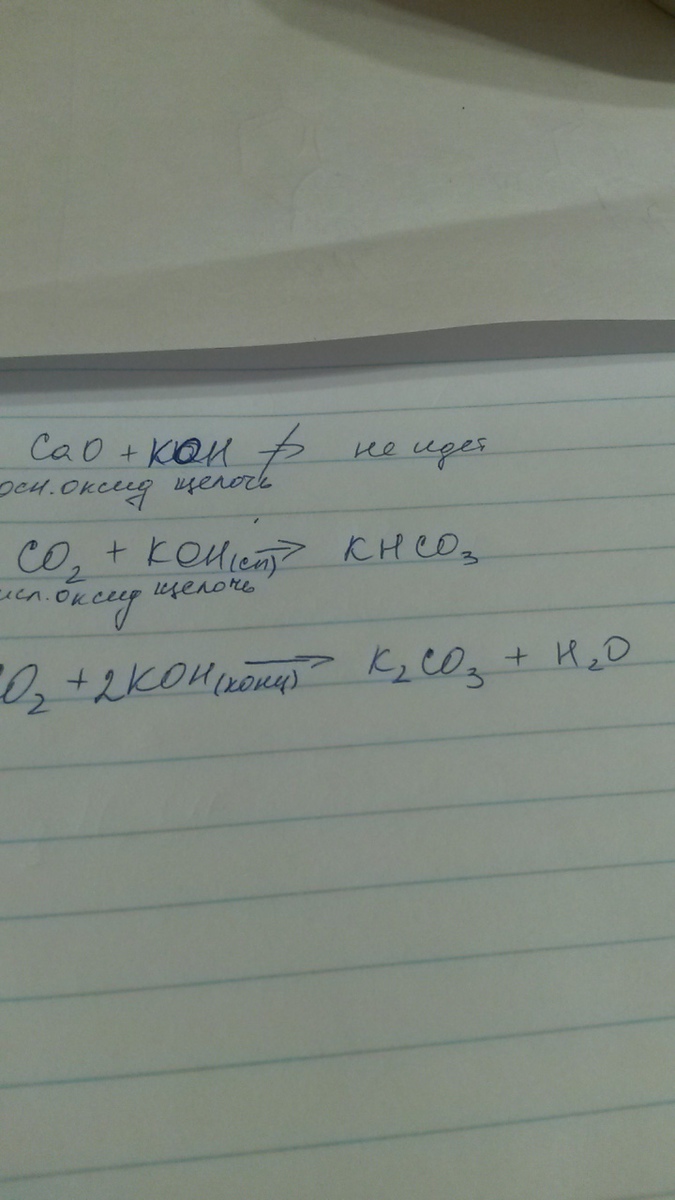 CaO + KOH ↛ не идет
осн.оксид щелочь
CO₂ + KOH(сп) → KHCO₃
исл.оксид щелочь
CO₂ + 2KOH(конц) → K₂CO₃ + H₂O